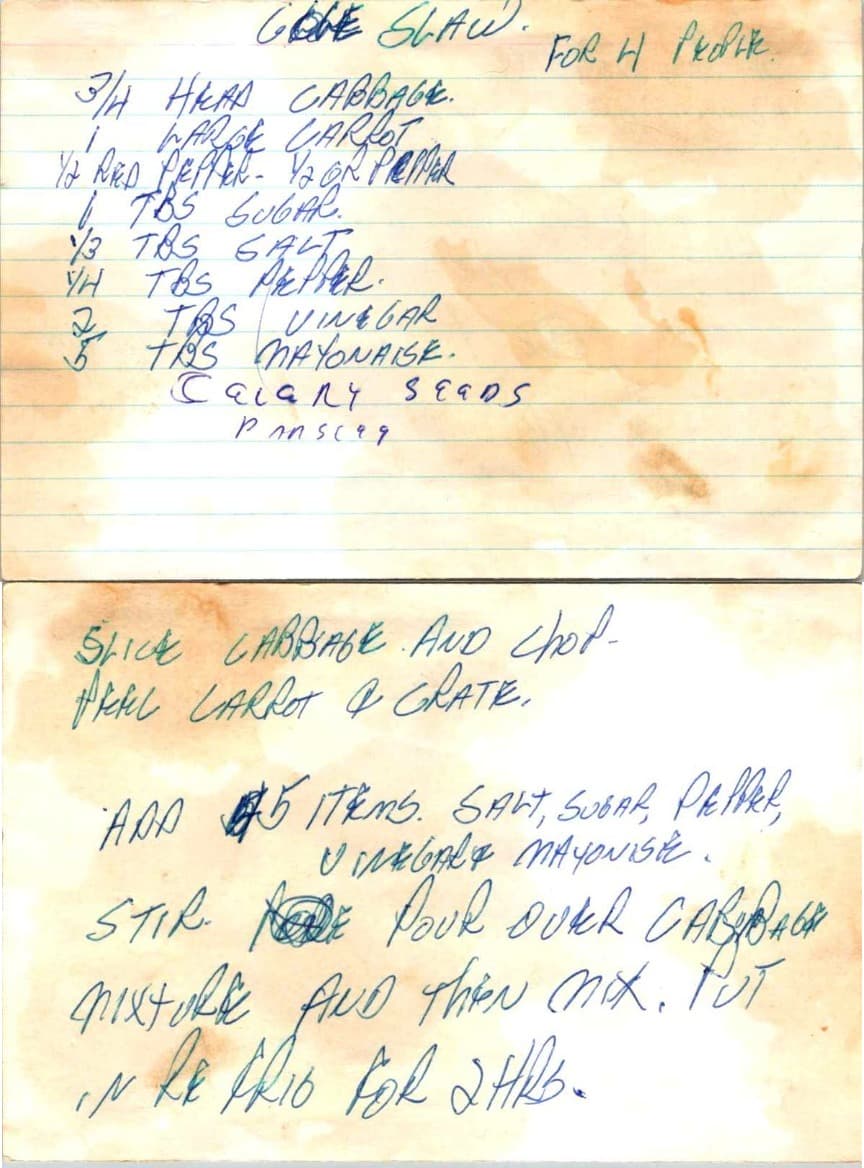 COLE SLAW.
FOR 4 PEOPLE.
3/4 HEAD CABBAGE.
1 LARGE CARROT
1/2 RED PEPPER - 1/2 GR PEPPER
1 TBS SUGAR.
1/3 TBS SALT
1/4 TBS PEPPER.
2 TBS VINEGAR
5 TBS MAYONAISE.
CALARY SEADS
SLICE CABBAGE AND CHOP-
PEEL CARROT & GRATE.
ADD 5 ITEMS. SALT, SUGAR, PEPPER,
VINEGAR & MAYONISE.
STIR. POUR OVER CABBAGE
MIXTURE AND THEN MIX. PUT
IN REFRIG FOR 2 HRS.